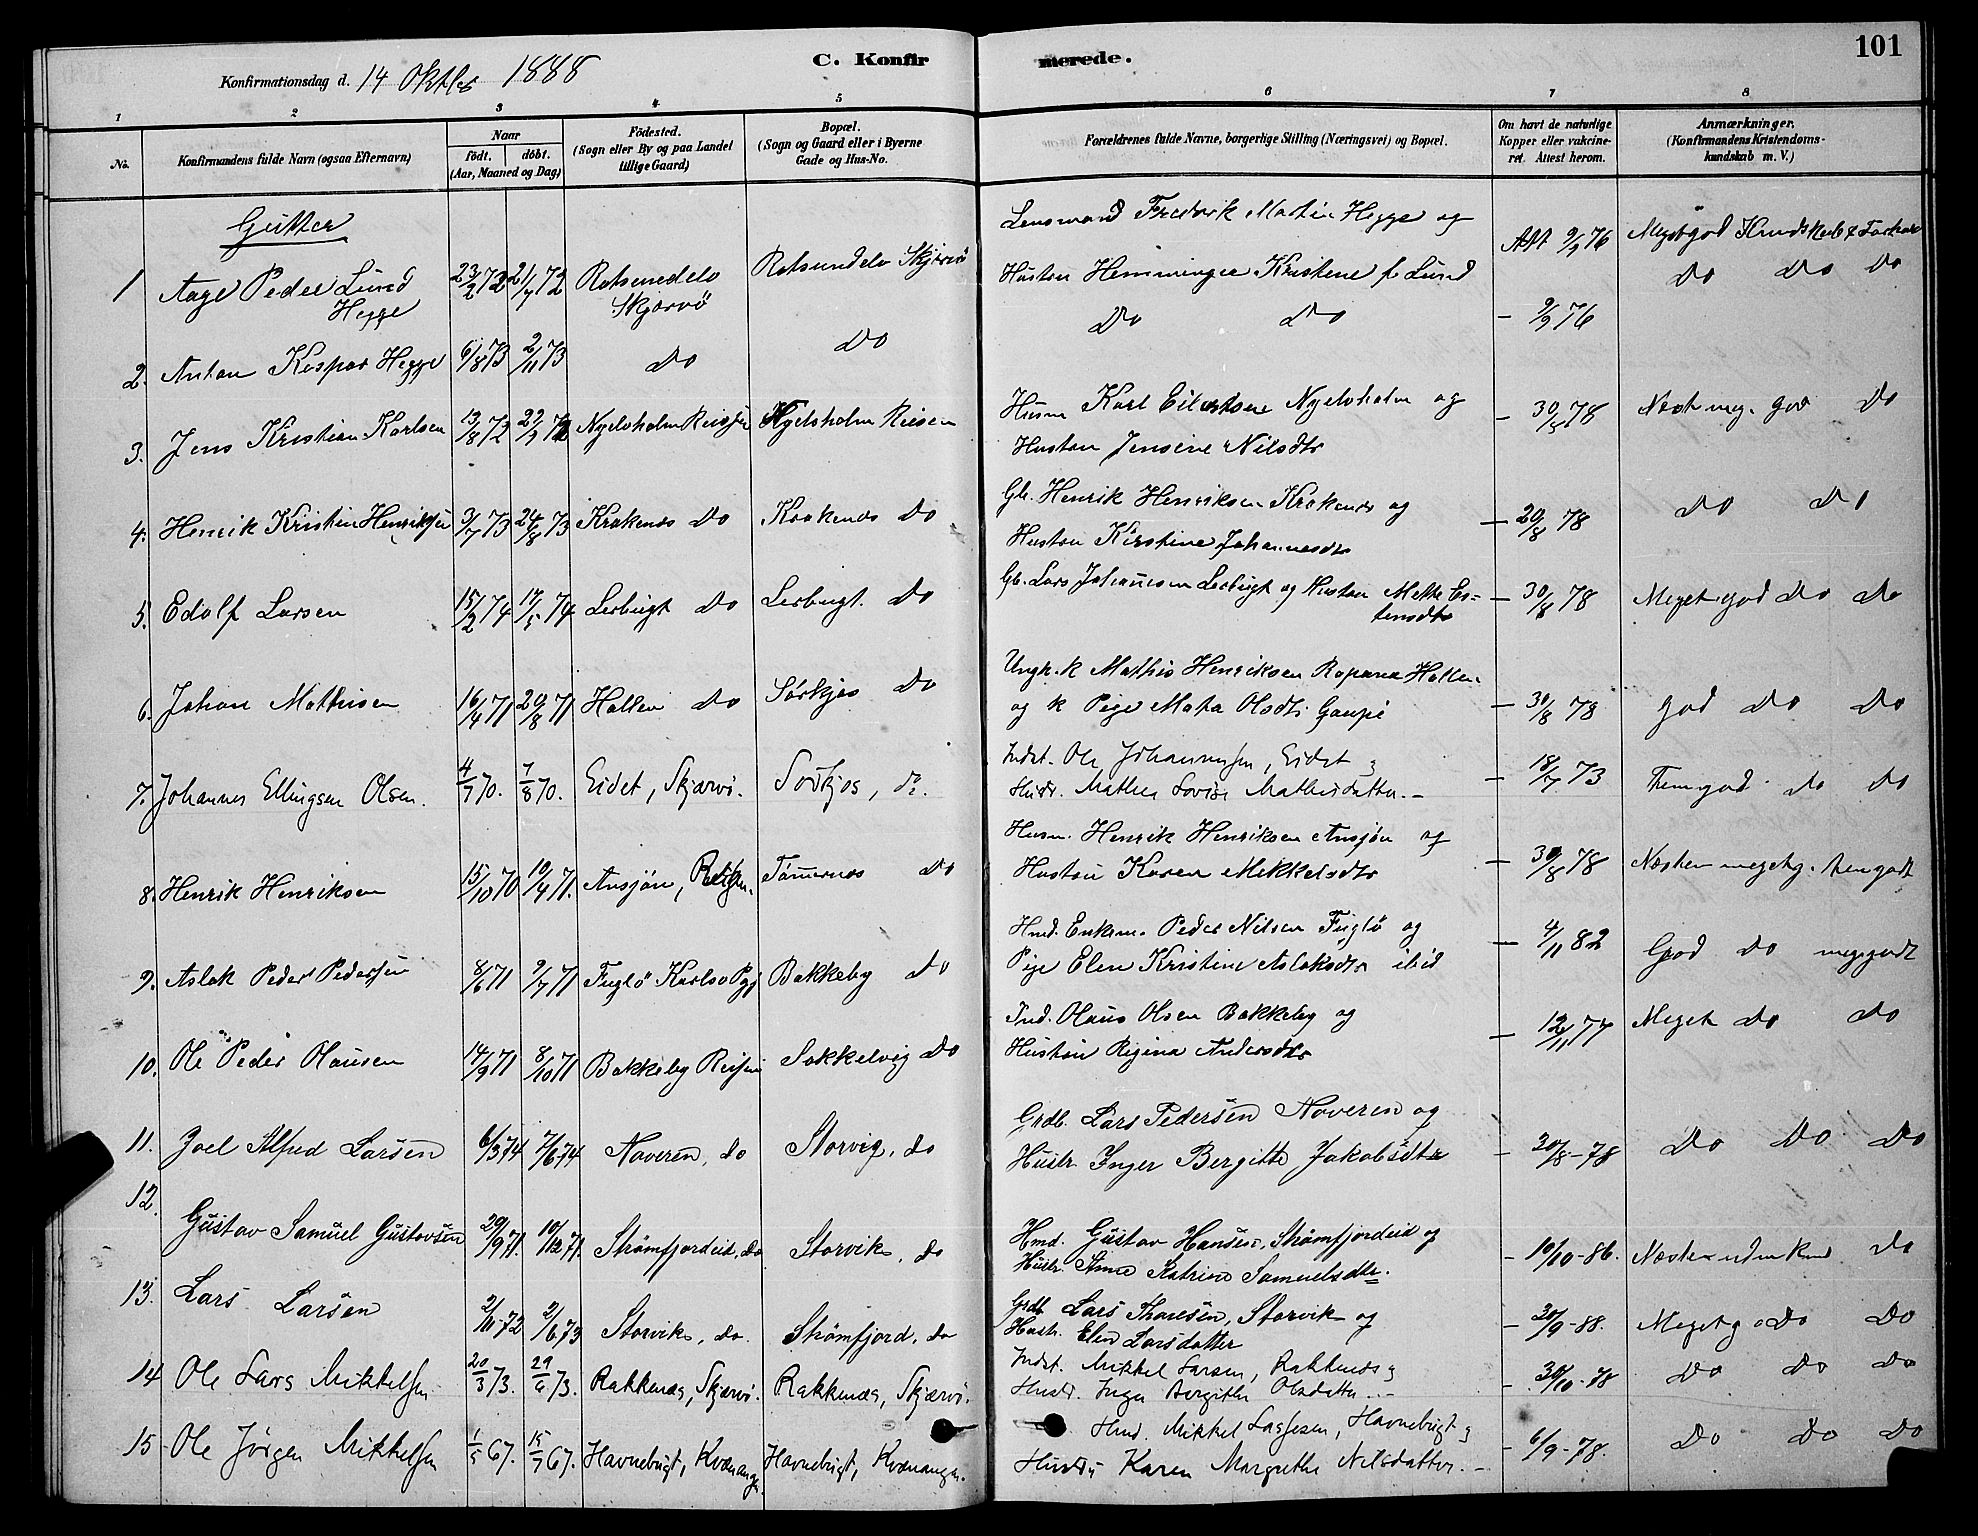 C. Konfirmerede.
101
Konfirmationsdag d. 14 Oktbr 1888
1 2 3 4 5 6 7 8
No.
Konfirmandens fulde Navn (ogsaa Efternavn)
Naar födt. döbt. (Aar, Maaned og Dag)
Födested. (Sogn eller By og paa Landet tillige Gaard)
Bopæl. (Sogn og Gaard eller i Byerne Gade og Hus-No.
Forældrenes fulde Navne, borgerlige Stilling (Næringsvei) og Bopæl.
Om havt de naturlige Kopper eller vakcineret. Attest herom.
Anmærkninger. (Konfirmandens Kristendomskundskab m. V.)
Gutter
1 Aage Peder Lund Hegge 23/2 72 21/7 72 Rotsundelv Skjærvö Rotsundelv Skjærvö
Lensmand Fredrik Martin Hegge og Att 9/9 76 Megetgod Kundskab & Forhold
Hustru Hemminger Kristene f. Lund Do Do Do
2. Anton Kaspar Hegge 6/8 73 2/11 73 Do Do Do Do - 9/9 76
3. Jens Kristian Karlsen 13/8 72 22/9 72 Nyelvholm Reisen Nyelsholm Reisen
Husm Karl Eilertsen Nyelvholm og - 30/8 78 Næst meg. god Do
Hustru Jensine Nilsdtr
4. Henrik Kristin Henriksen 3/7 73 24/8 73 Krakenes Do Krakenes Do
Gb. Henrik Henriksen Krakenes og - 20/8 78 Do Do
Hustru Kirstine Johannesdtr
5. Edolf Larsen 15/2 74 17/5 74 Lerbugt Do Lerbugt. Do
Gb. Lars Johannesen Lerbugt og Hustru Mette Estensdtr - 30/8 78 Meget god Do Do
6. Johan Mathisen 16/4 71 20/8 71 Hallen Do Sörkjos Do
Ungk. k Mathis Henriksen Hallen
og k Pige Marta Olsdtr Gaupe - 30/8 78 god Do Do
7. Johannes Ellingsen Olsen. 4/7 70. 7/8 70. Eidet, Skjærvö. Sörkjos, do.
Indst. Ole Johannesen, Eidet &
Hustr. Mathea Lovise Mathisdatter. - 18/7 73 Temgod do do
8. Henrik Henriksen 15/10 70 10/4 71. Ansjön, Reisen. Tömernes do
Husm. Henrik Henriksen Ansjön og
Hustru Karen Mikkelsdtr - 30/8 78 Næsten megetg. temgodt
9. Aslak Peder Pedersen 8/6 71 9/7 71 Fuglö Karlsö Pgj Bakkeby Do
Hmd. Enkem. Peder Nilsen Fuglö og - 4/11 82 God do meggodt
Pige Elen Kristine Aslaksdtr ibid
10. Ole Peder Olausen 14/9 71 8/10 71 Bakkeby Reisen Sokkelvig Do
Ind. Olaus Olsen Bakkeby og - 12/11 77 Meget do Do
Hustru Regina Andersdtr
11. Joel Alfred Larsen 6/3 74 7/6 74 Naveren, do Storvig, do
Grdb. Lars Pedersen Naveren og
Hustr. Inger Bergitte Jakobsdtr - 30/8-78 Do Do Do
12. Gustav Samuel Gustavsen 29/9 71. 10/12 71. Strömfjordeid, do Storvik, do
Hmd. Gustav Hansen, Strömfjordeid og
Hustr. Anne Katrine Samuelsdtr. - 10/10-86. Næsten uden Kund Do
13. Lars Larsen 2/11 72 2/6 73 Storvik, do. Strömfjord, do
Grdb Lars Thomesen, Storvik og
Hustr. Elen Larsdatter - 30/9-88. Megetg odo Do
14 Ole Lars Mikkelsen 20/3 73. 29/6 73. Rakkenæs, Skjærvö. Rakkenæs, Skjærvö.
Indst. Mikkel Larsen, Rakkenæs &
Hustr. Inger Bergithe Olsdatter. - 30/10-78 Do Do Do
15 Ole Jörgen Mikkelsen 1/5 67. 15/7 67. Havnebugt, Kvænangen. Havnebugt, Kvænangen.
Hmd. Mikkel Larsen, Havnebugt &
Hustru Karen Margrethe Nilsdatter. - 6/9-78. Do Do Do